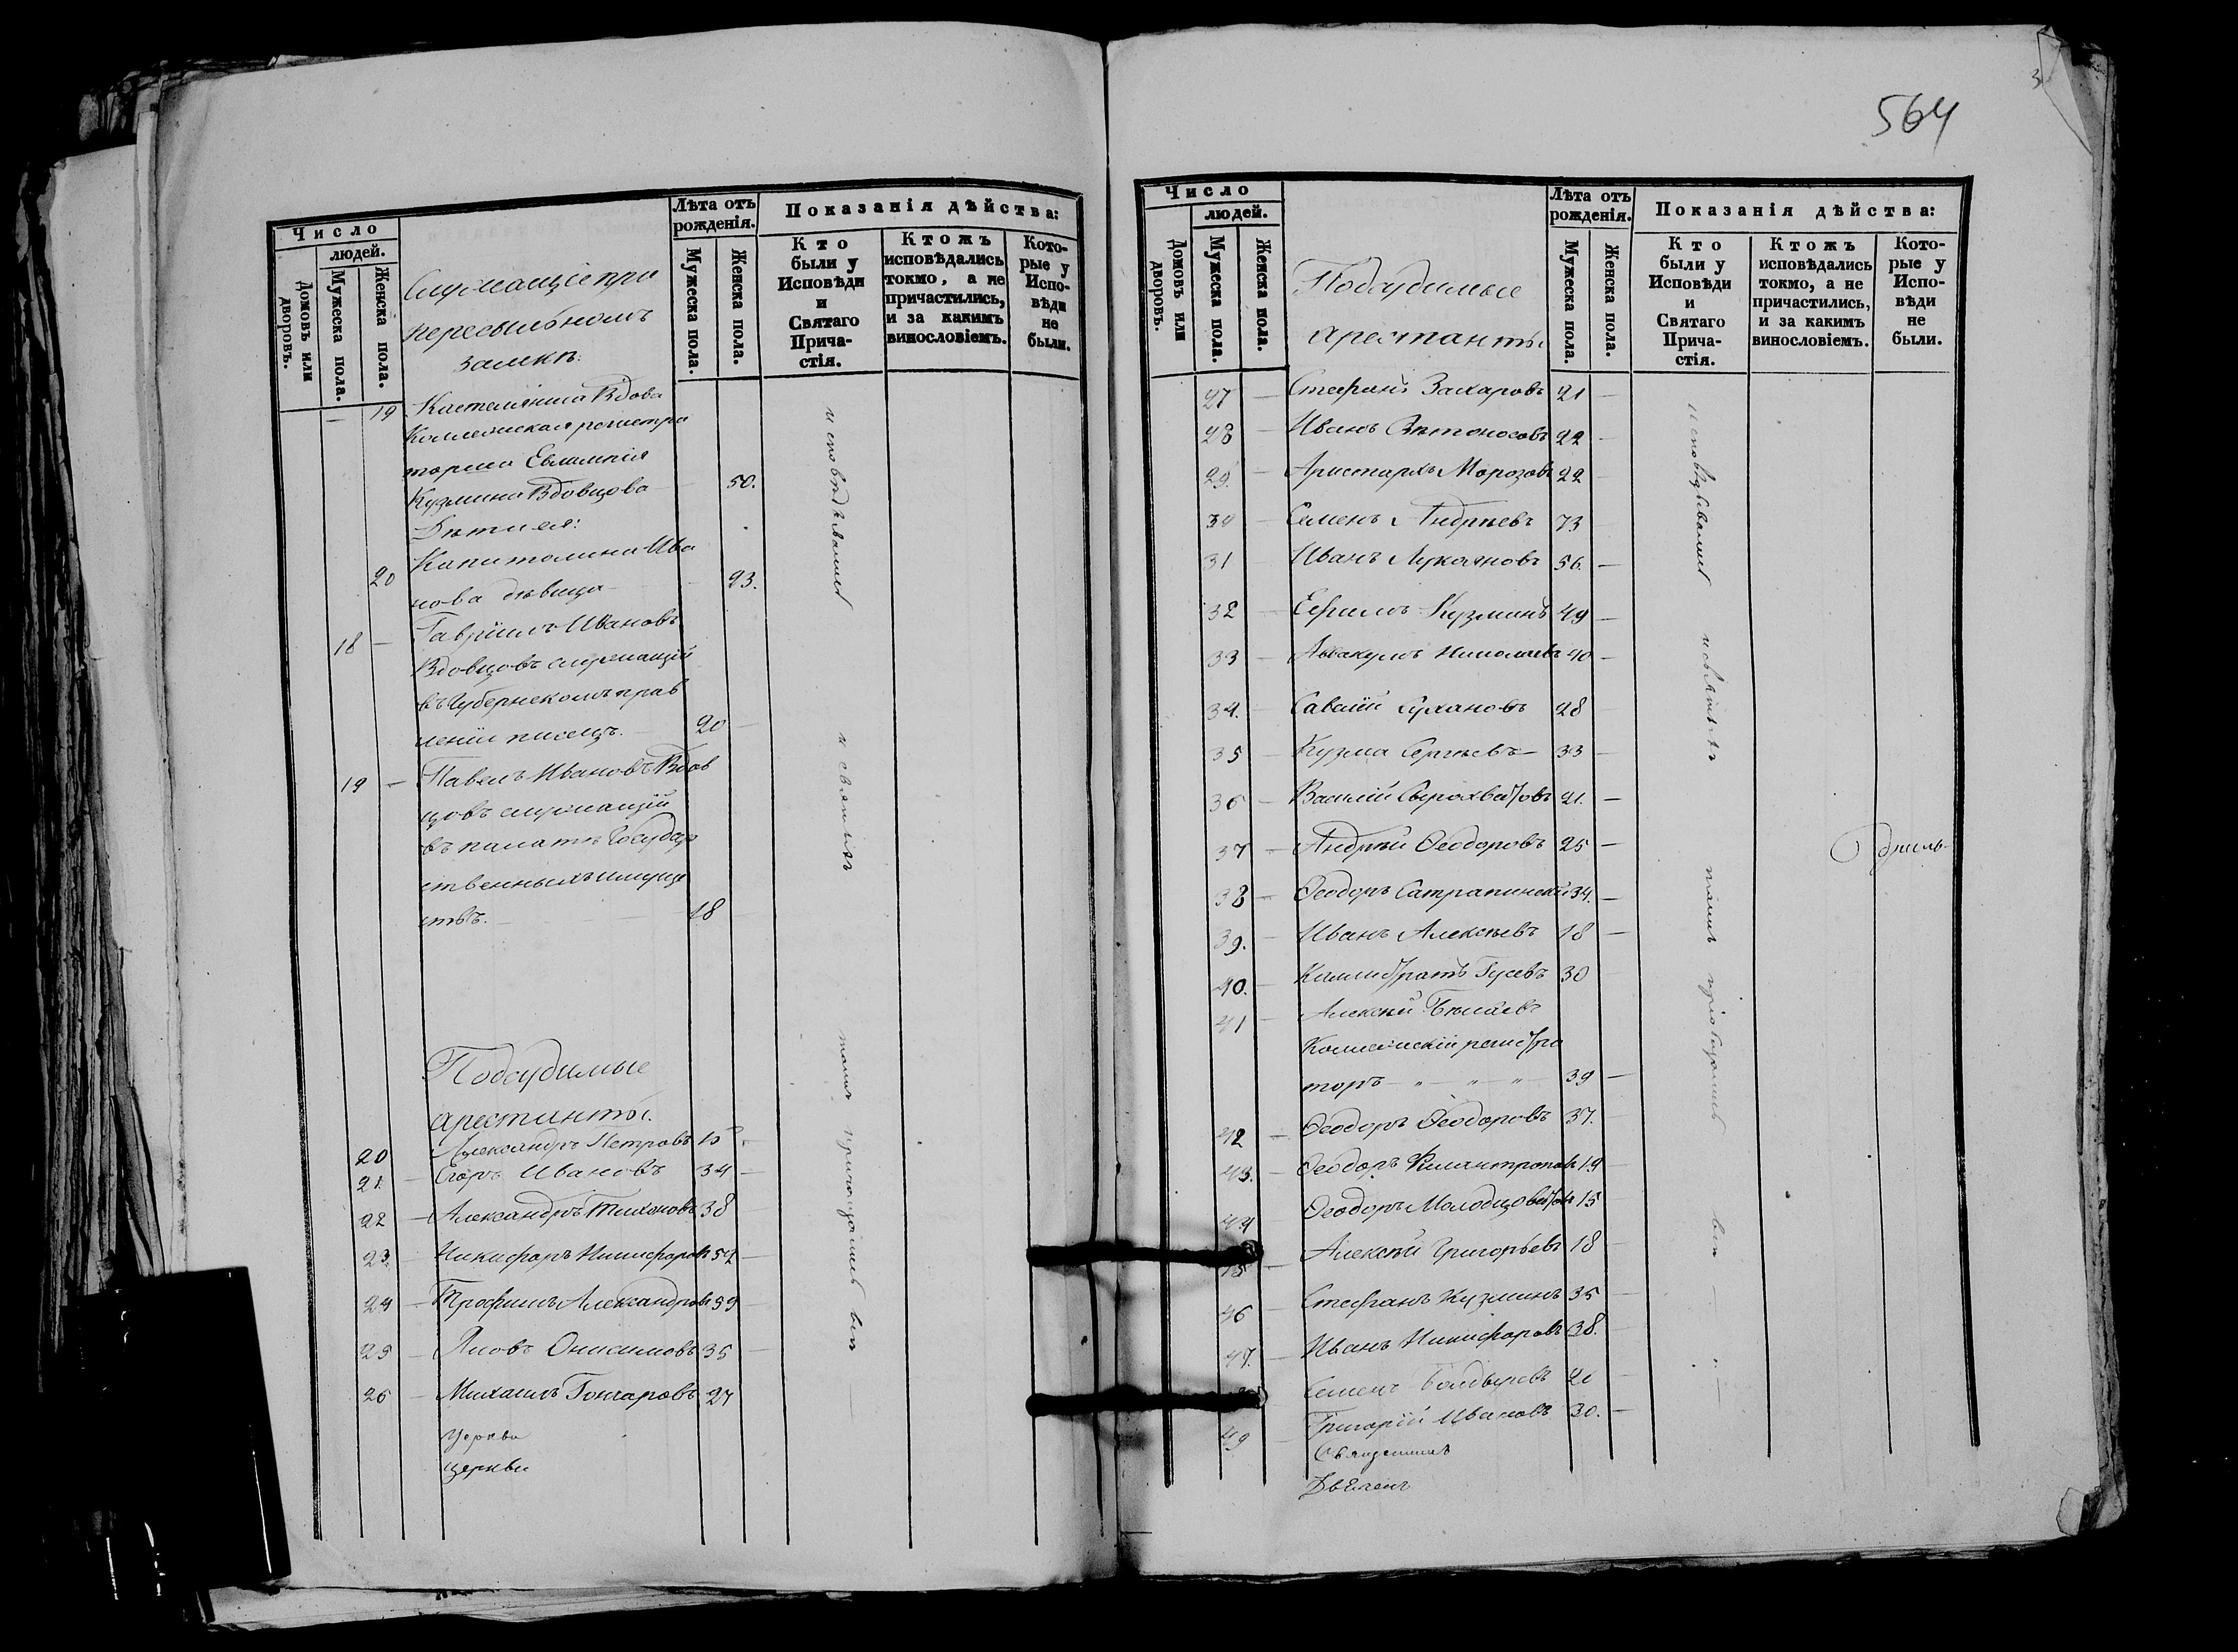 564
3
Число
людей.
Домовъ или дворовъ.
Мужеска пола.
Женска пола.
Служащіе при
пересыльномъ
замкѣ:
Лѣта отъ
рожденія.
Мужеска пола.
Женска пола.
Показанія дѣйства:
Кто
были у
Исповѣди
и
Святаго
Прича-
стія.
Ктожъ
исповѣдались
токмо, а не
причастились,
и за какимъ
винословіемъ.
Кото-
рые у
Испо-
вѣди
не
были.
— 19 Кастелянша Вдова
Коллежская регистра
торша Евлампія
Кузмина Вдовцова — 50.
Дѣти ея:
20 Капитолина Ива
нова дѣвица — 23.
18 — Гавріилъ Ивановъ
Вдовцовъ служащій
въ Губернскомъ прав
леніи писецъ. 20 —
19 — Павелъ Ивановъ Вдов
цовъ служащій
въ палатѣ Государ
ственныхъ имуще
ствъ. — 18
Подсудимые
арестанты.
20 Александръ Петровъ 15 —
21. — Егоръ Ивановъ 34 —
22 — Александръ Тихоновъ 38 —
23. — Никифоръ Никифоровъ 52 —
24 — Трофимъ Александровъ 59 —
25 — Яковъ Онисимовъ 35 —
26 — Михаилъ Гончаровъ 27
исповѣдывались и святыхъ таинъ пріобщались всѣ
церкви
Число
людей.
Домовъ или дворовъ.
Мужеска пола.
Женска пола.
Подсудимые
арестанты
Лѣта отъ
рожденія.
Мужеска пола.
Женска пола.
Показанія дѣйства:
Кто
были у
Исповѣди
и
Святаго
Прича-
стія.
Ктожъ
исповѣдались
токмо, а не
причастились,
и за какимъ
винословіемъ.
Кото-
рые у
Испо-
вѣди
не
были.
27 — Стефанъ Захаровъ 21 —
28 — Иванъ 22 —
29. — Аристархъ Морозовъ 22 —
30 — Семенъ Андреевъ 73 —
31 Иванъ Лукояновъ 56. —
32 — Ефимъ Кузминъ 49 —
33 — Аввакумъ Николаевъ 40 —
34. — Савелій Сухановъ 28 —
35 — Кузма Сергѣевъ — 33 —
36 — Василій Сырохватовъ 21. —
37 — Андрей Ѳеодоровъ 25 —
38 — Ѳеодоръ Сатрапинскій 34. —
39. — Иванъ Алексѣевъ 18 —
40. — Каллистратъ Гусевъ 30
41 — Алексѣй Бѣляевъ
Коллежскій регистра
торъ — " — " — " — 39 —
42 — Ѳеодоръ Ѳеодоровъ 37. —
43. — Ѳеодоръ Филантроповъ 19 —
44 Ѳеодоръ 15
45 — Алексѣй Григорьевъ 18 —
46 — Стефанъ Кузминъ 35 —
47. — Иванъ Никифоровъ 38. —
Семенъ Болдыревъ 20 —
49 — Григорій Ивановъ 30. —
исповѣдывались и святыхъ таинъ пріобщались всѣ
Священникъ